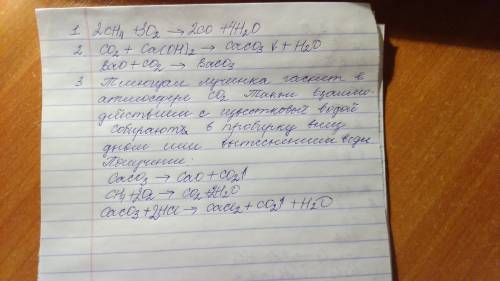 1. 2CH₄ + 3O₂ → 2CO + 4H₂O
2. CO₂ + Ca(OH)₂ → CaCO₃ ↓ + H₂O
BaO + CO₂ → BaCO₃
3 Тлеющая лучинка гаснет в
атмосфере CO₂ Также взаимо-
действии с известковой водой
собирают в пробирку вниз
дном или вытеснением воды
Получение:
CaCO₃ → CaO + CO₂↑
CH₄ + 2O₂ → CO₂ + 2H₂O
CaCO₃ + 2HCl → CaCl₂ + CO₂↑ + H₂O